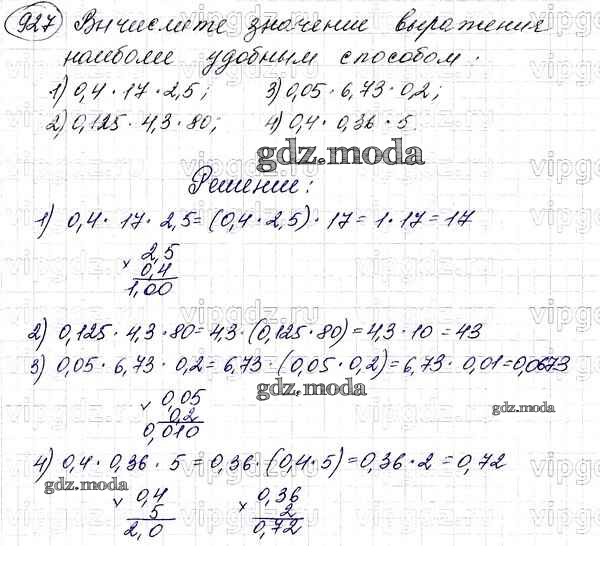 927 Вычислите значение выражения
наиболее удобным способом:
1) 0,4 · 17 · 2,5; 3) 0,05 · 6,73 · 0,2;
2) 0,125 · 4,3 · 80; 4) 0,4 · 0,36 · 5.
gdz.moda
Решение:
1) 0,4 · 17 · 2,5 = (0,4 · 2,5) · 17 = 1 · 17 = 17
× 2,5
0,4
1,00
2) 0,125 · 4,3 · 80 = 4,3 · (0,125 · 80) = 4,3 · 10 = 43
3) 0,05 · 6,73 · 0,2 = 6,73 · (0,05 · 0,2) = 6,73 · 0,01 = 0,0673
gdz.moda
× 0,05
0,2
0,010
gdz.moda
4) 0,4 · 0,36 · 5 = 0,36 · (0,4 · 5) = 0,36 · 2 = 0,72
gdz.moda
× 0,4 × 0,36
5 2
2,0 0,72
vipgdz.ru